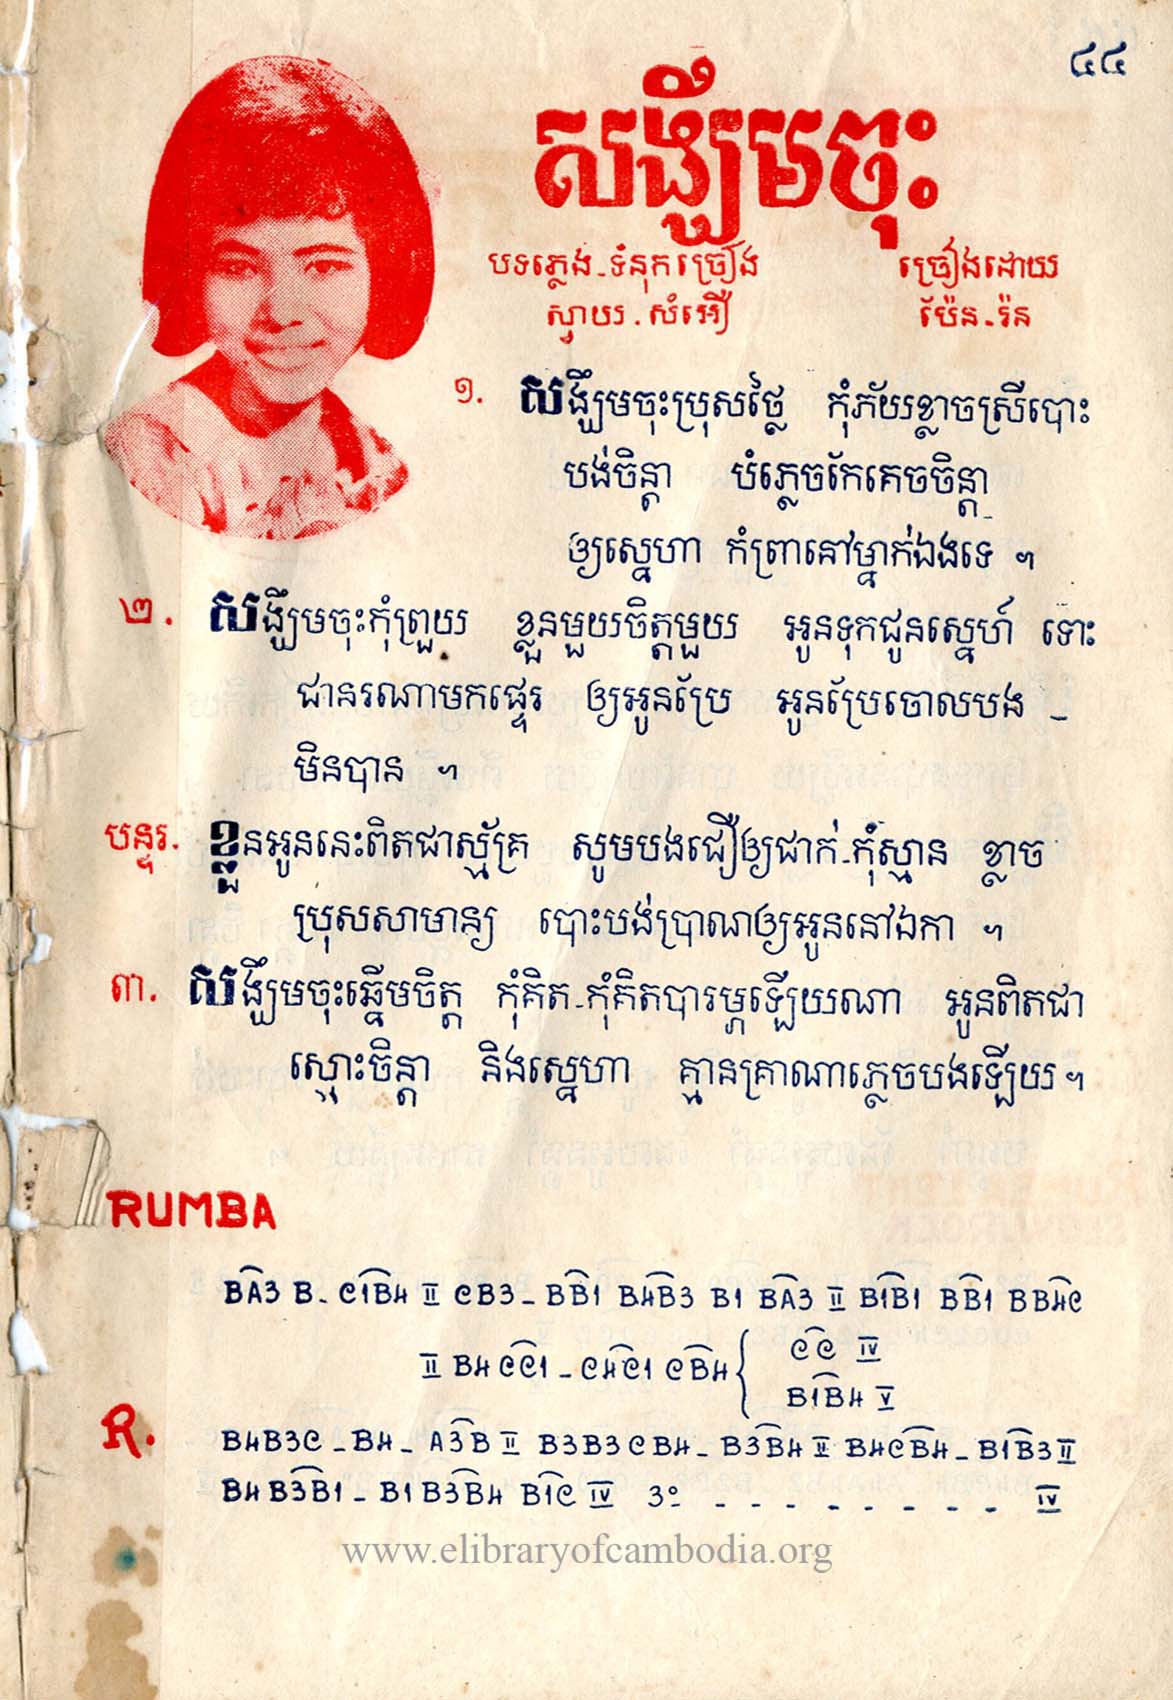 ៤៤
សង្ឃឹមចុះ
បទភ្លេង-ទំនុកច្រៀង ច្រៀងដោយ
ស្វាយ. សំអឿ ប៉ែន-រ៉ន
១. សង្ឃឹមចុះប្រុសថ្លៃ កុំភ័យខ្លាចស្រីបោះ
បង់ចិន្តា បំភ្លេចកែគេចចិន្តា
ឲ្យស្នេហា កំព្រានៅម្នាក់ឯងទេ ។
២. សង្ឃឹមចុះកុំព្រួយ ខ្លួនមួយចិត្តមួយ អូនទុកជូនស្នេហ៍ ទោះ
ជានរណាមកផ្ទេរ ឲ្យអូនប្រែ អូនប្រែចោលបង _
មិនបាន ។
បន្ទរ. ខ្លួនអូននេះពិតជាស្ម័គ្រ សូមបងជឿឲ្យជាក់-កុំស្មាន ខ្លាច
ប្រុសសាមាន្យ បោះបង់ប្រាណឲ្យអូននៅឯកា ។
៣. សង្ឃឹមចុះឆ្នើមចិត្ត កុំគិត-កុំគិតបារម្ភឡើយណា អូនពិតជា
ស្មោះចិន្តា និងស្នេហា គ្មានគ្រាណាភ្លេចបងឡើយ ។
RUMBA
BA3 B- C1B4 II CB3- BB1 B4B3 B1 BA3 II B1B1 BB1 BB4C
II B4CC1-C4C1 CB4 { CC IV
B1B4 V
R. B4B3C-B4- A3B II B3B3CB4- B3B4 II B4CB4-B1B3 II
B4B3B1- B1B3B4 B1C IV 3° - - - - - - - - - IV
www.elibraryofcambodia.org